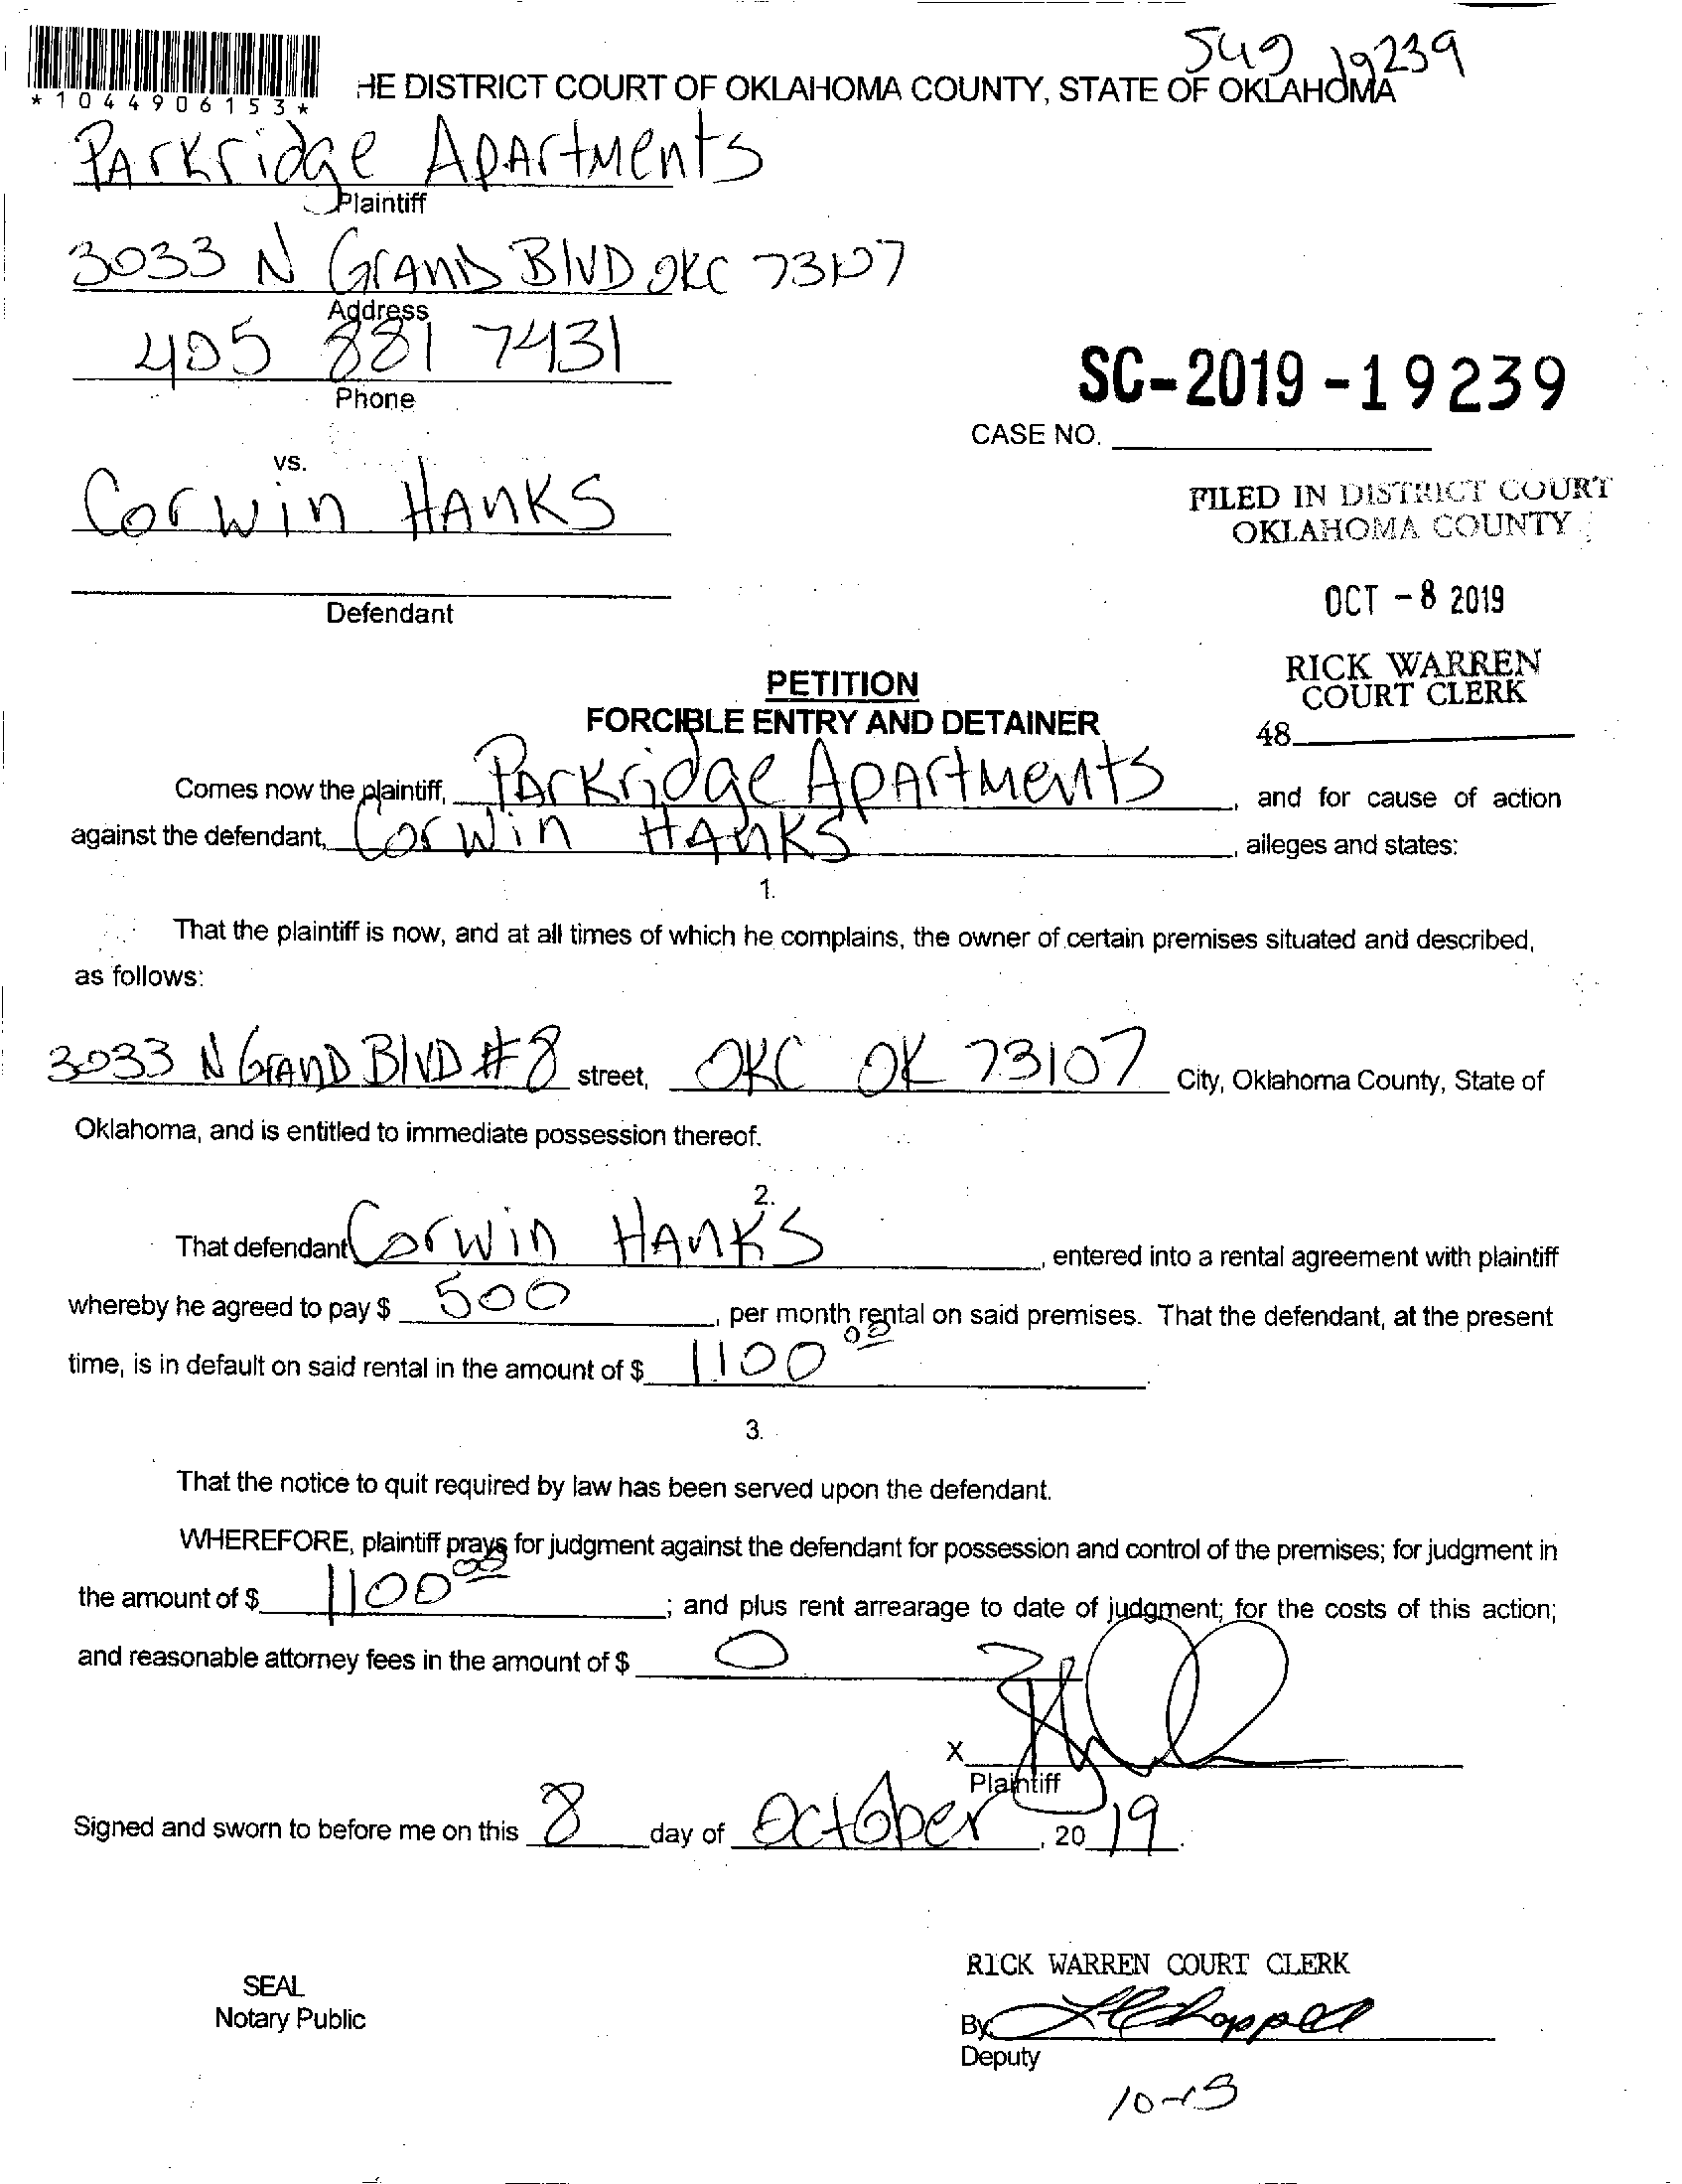 549 19239
*1044906153*
HE DISTRICT COURT OF OKLAHOMA COUNTY, STATE OF OKLAHOMA
Parkridge Apartments
Plaintiff
3033 N Grand Blvd OKC 73107
Address
405 881 7431
Phone
SC-2019-19239
CASE NO.
vs.
Corwin Hanks
Defendant
FILED IN DISTRICT COURT
OKLAHOMA COUNTY
OCT -8 2019
RICK WARREN
COURT CLERK
48
PETITION
FORCIBLE ENTRY AND DETAINER
Comes now the plaintiff, Parkridge Apartments, and for cause of action
against the defendant, Corwin Hanks, alleges and states:
1.
That the plaintiff is now, and at all times of which he complains, the owner of certain premises situated and described,
as follows:
3033 N Grand Blvd #8 street, OKC OK 73107 City, Oklahoma County, State of
Oklahoma, and is entitled to immediate possession thereof.
2.
That defendant Corwin Hanks, entered into a rental agreement with plaintiff
whereby he agreed to pay $ 500, per month rental on said premises. That the defendant, at the present
time, is in default on said rental in the amount of $ 1100 00
3.
That the notice to quit required by law has been served upon the defendant.
WHEREFORE, plaintiff prays for judgment against the defendant for possession and control of the premises; for judgment in
the amount of $ 1100 00; and plus rent arrearage to date of judgment; for the costs of this action;
and reasonable attorney fees in the amount of $ 0
X
Plaintiff
Signed and sworn to before me on this 8 day of October, 20 19.
SEAL
Notary Public
RICK WARREN COURT CLERK
By
Deputy